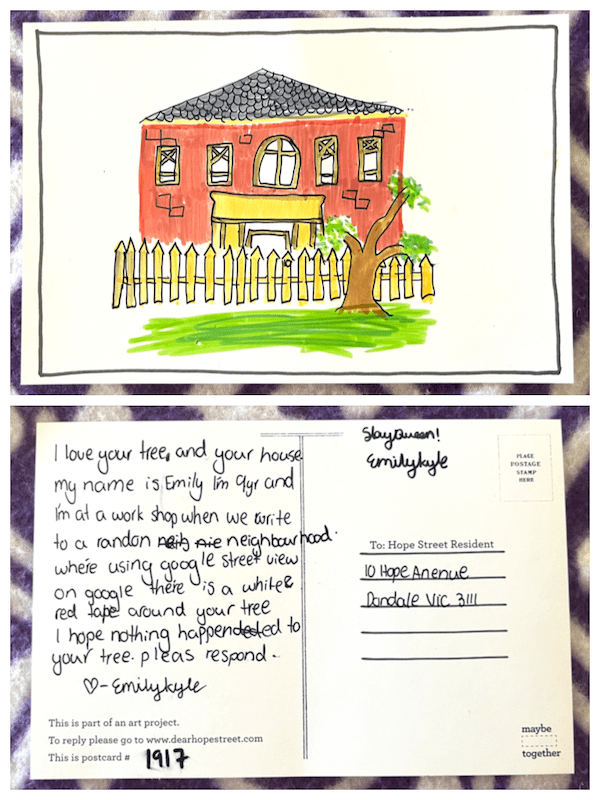 I love your tree, and your house
my name is Emily I'm 9yr and
I'm at a work shop when we write
to a randon neib nie neighbourhood.
where using google street view
on google there is a white &
red tape around your tree
I hope nothing happendeded to
your tree. pleas respond.
♡-Emilykyle
This is part of an art project.
To reply please go to www.dearhopestreet.com
This is postcard # 1917
Slay Queen!
Emilykyle
PLACE
POSTAGE
STAMP
HERE
To: Hope Street Resident
10 Hope Anenue
Dandale Vic 3111
maybe
together